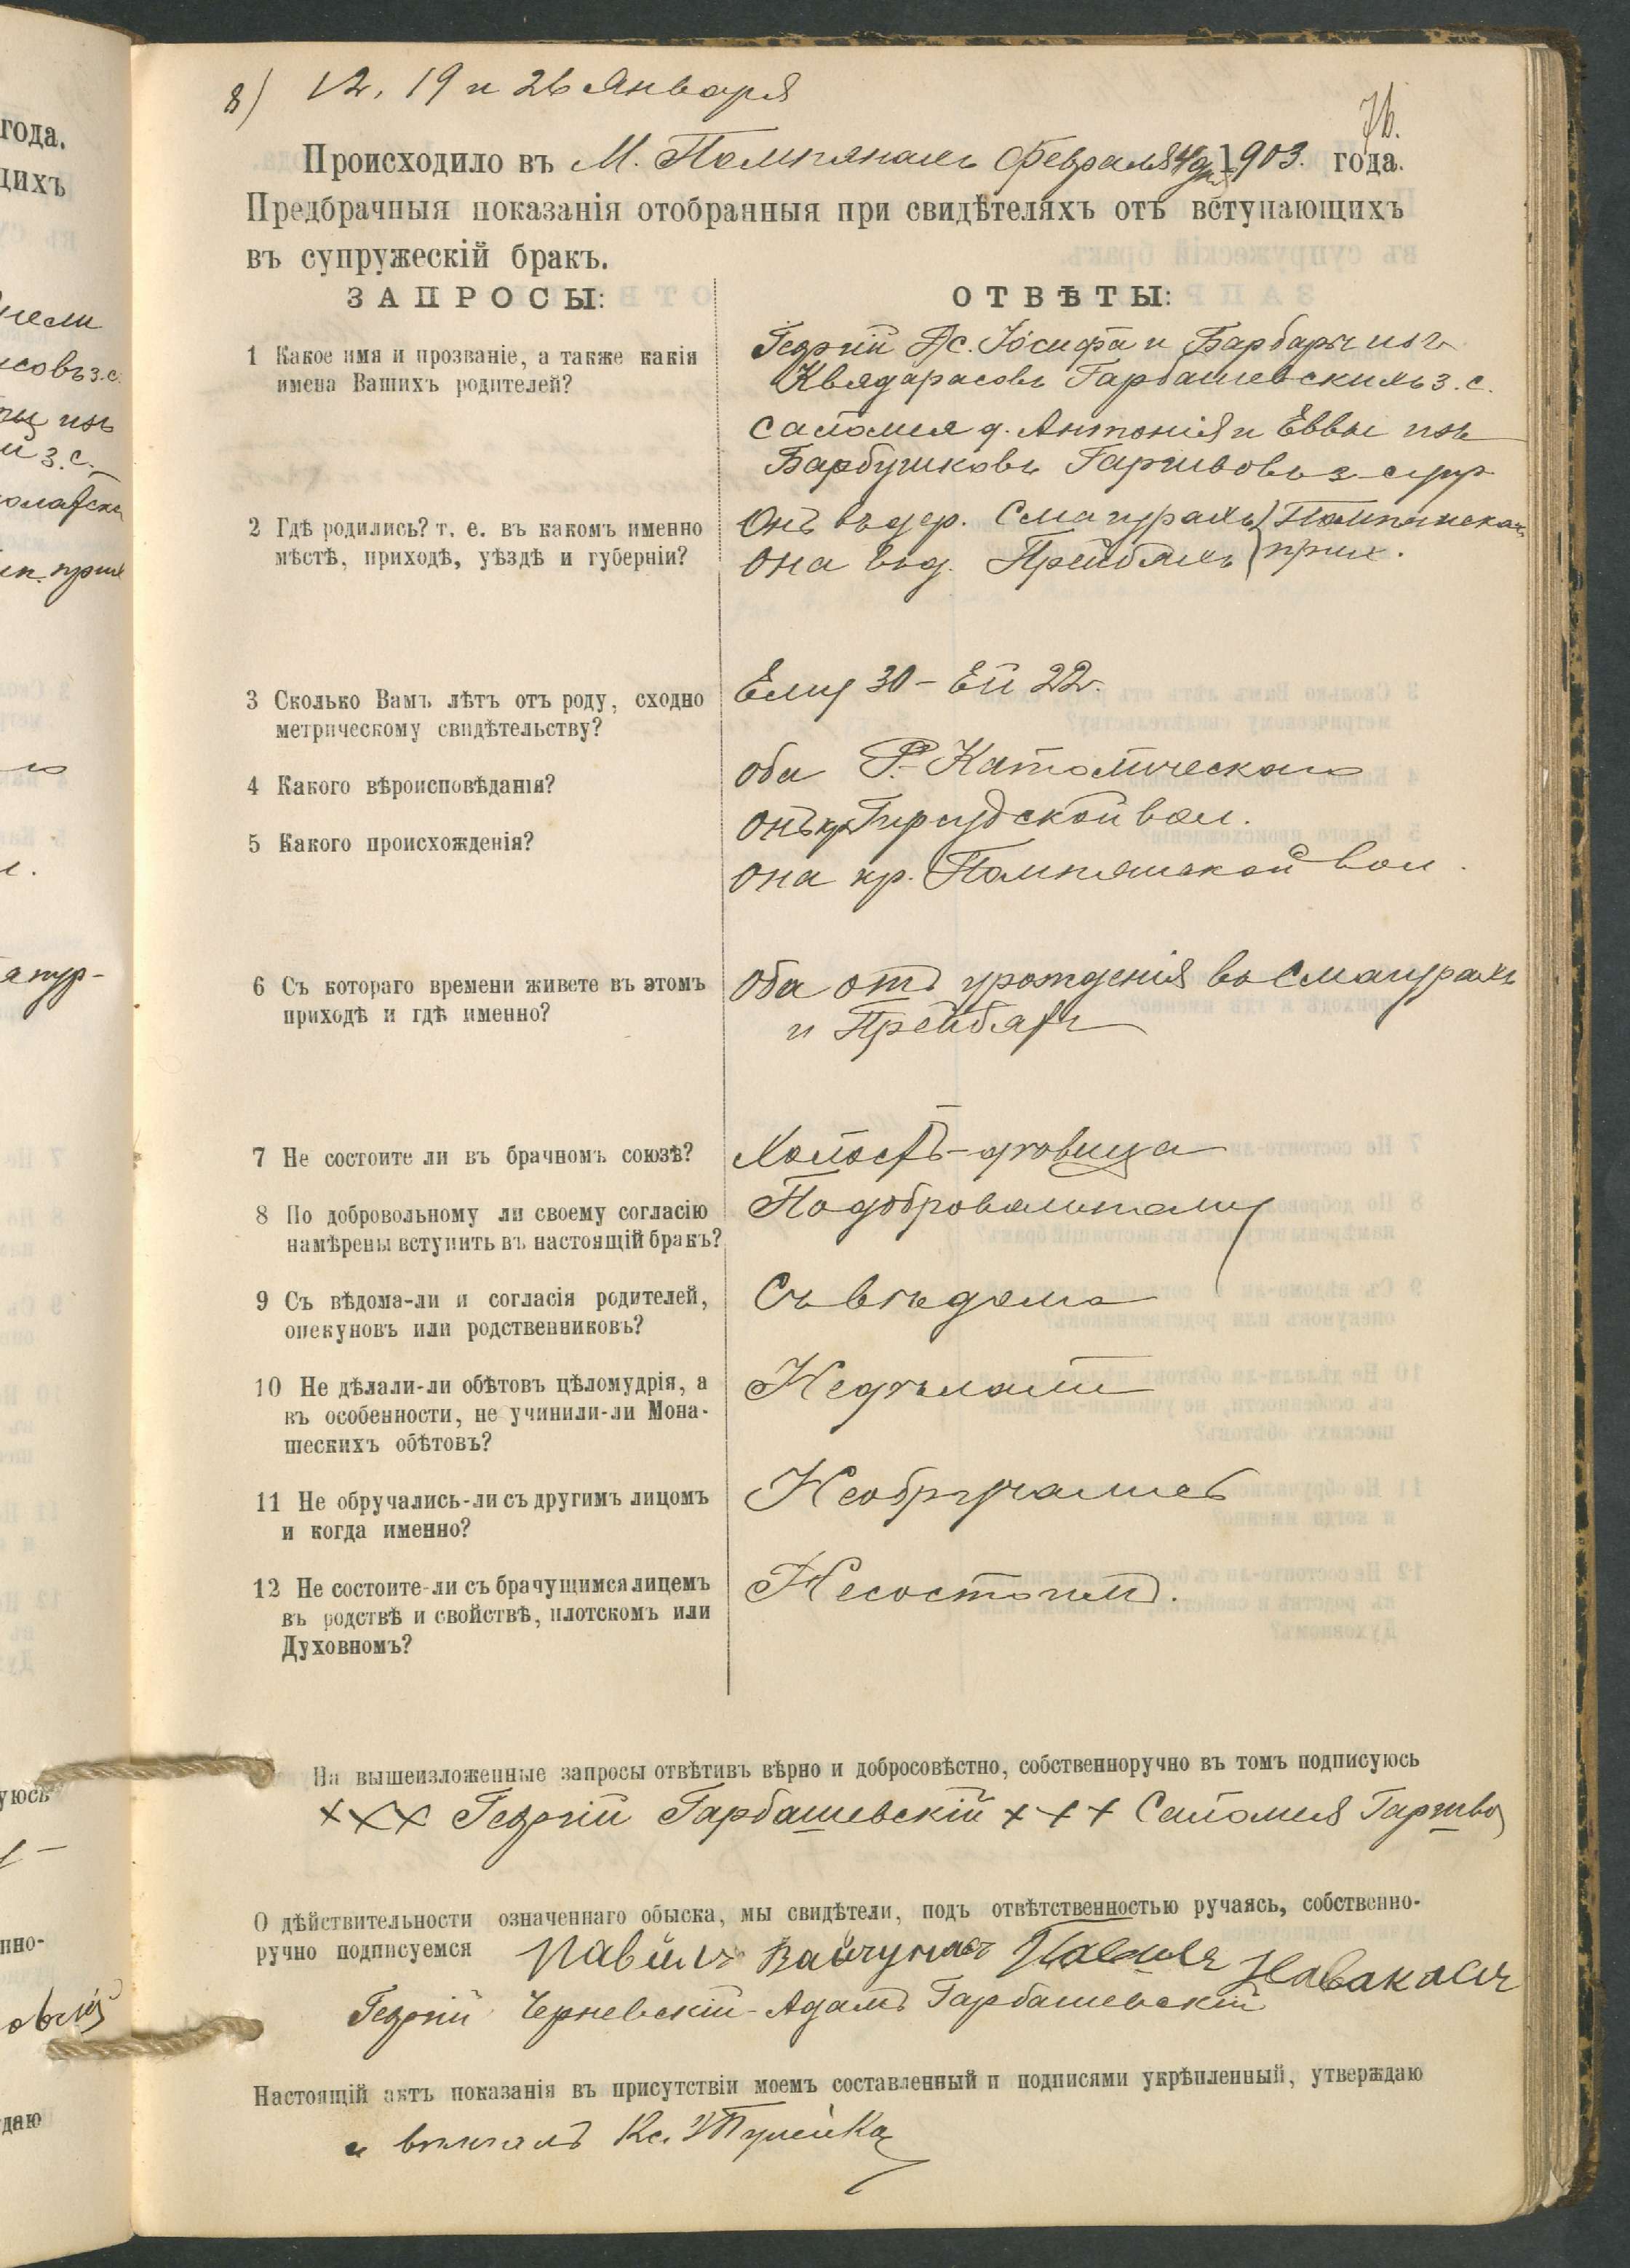 8) 12, 19 и 26 Января
76.
Происходило въ М. Помпянахъ Февраля 4 дня 1903. года.
Предбрачныя показанія отобранныя при свидѣтеляхъ отъ вступающихъ
въ супружескій бракъ.
ЗАПРОСЫ:
ОТВѢТЫ:
1 Какое имя и прозваніе, а также какія
имена Вашихъ родителей?
Георгій с. Іосифа и Барбары изъ
Квядарасовъ Гарбашевскихъ з. с.
Саломея д. Антонія и Еввы изъ
Барбушковъ Гаршвовъ з супр
2 Гдѣ родились? т. е. въ какомъ именно
мѣстѣ, приходѣ, уѣздѣ и губерніи?
Онъ въ дер. Смаурахъ } Помпянскаго
Она въ д. Прейбяхъ } прих.
3 Сколько Вамъ лѣтъ отъ роду, сходно
метрическому свидѣтельству?
Ему 30 – Ей 22 г.
4 Какого вѣроисповѣданія?
оба Р.-Католическаго
5 Какого происхожденія?
Онъ кр. Гирудской вол.
Она кр. Помпянской вол.
6 Съ котораго времени живете въ этомъ
приходѣ и гдѣ именно?
Оба отъ урожденія въ Смаурахъ
и Прейбяхъ
7 Не состоите ли въ брачномъ союзѣ?
Холостъ – дѣвица
8 По добровольному ли своему согласію
намѣрены вступить въ настоящій бракъ?
По добровольному
9 Съ вѣдома-ли и согласія родителей,
опекуновъ или родственниковъ?
Съ вѣдома
10 Не дѣлали-ли обѣтовъ цѣломудрія, а
въ особенности, не учинили-ли Мона-
шескихъ обѣтовъ?
Недѣлали
11 Не обручались-ли съ другимъ лицомъ
и когда именно?
Необручались
12 Не состоите-ли съ брачущимся лицемъ
въ родствѣ и свойствѣ, плотскомъ или
Духовномъ?
Несостоимъ.
На вышеизложенные запросы отвѣтивъ вѣрно и добросовѣстно, собственноручно въ томъ подписуюсь
+++ Георгій Гарбашевскій +++ Саломея Гаршво
О дѣйствительности означеннаго обыска, мы свидѣтели, подъ отвѣтственностью ручаясь, собственно-
ручно подписуемся Павилъ Вайчунасъ Навакасъ
Георгій Черневскій – Адамъ Гарбашевскій
Настоящій актъ показанія въ присутствіи моемъ составленный и подписями укрѣпленный, утверждаю
и вѣнчалъ Кс.